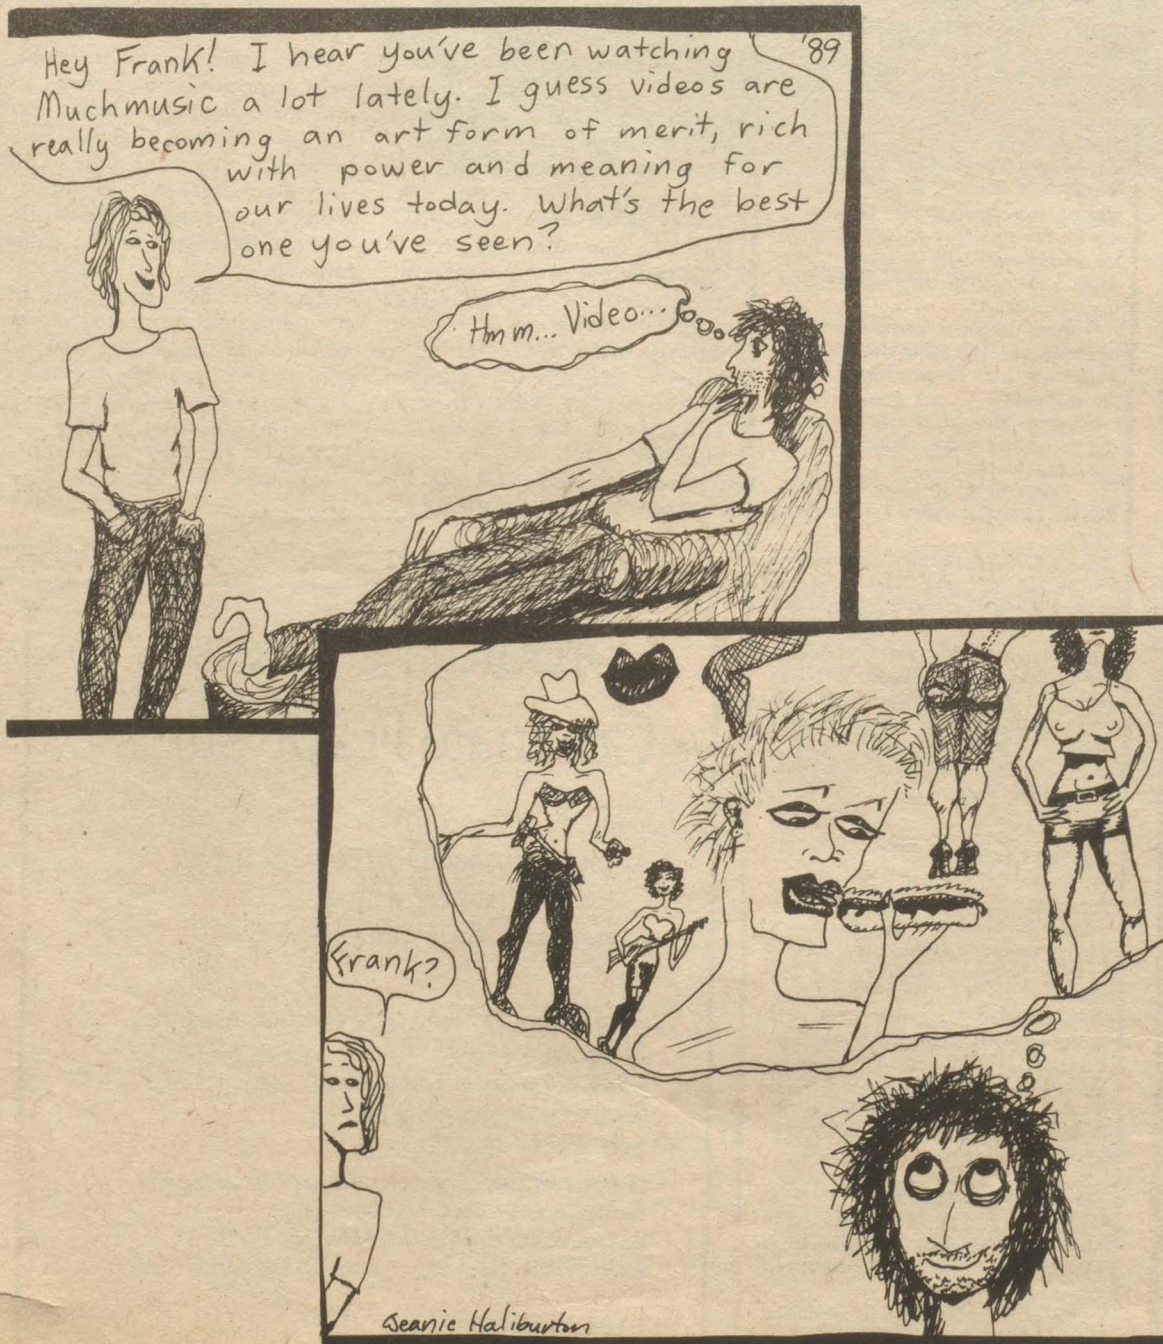 Hey Frank! I hear you've been watching
Muchmusic a lot lately. I guess videos are
really becoming an art form of merit, rich
with power and meaning for
our lives today. What's the best
one you've seen?
'89
Hmm... Video...
Frank?
Jeanie Haliburton